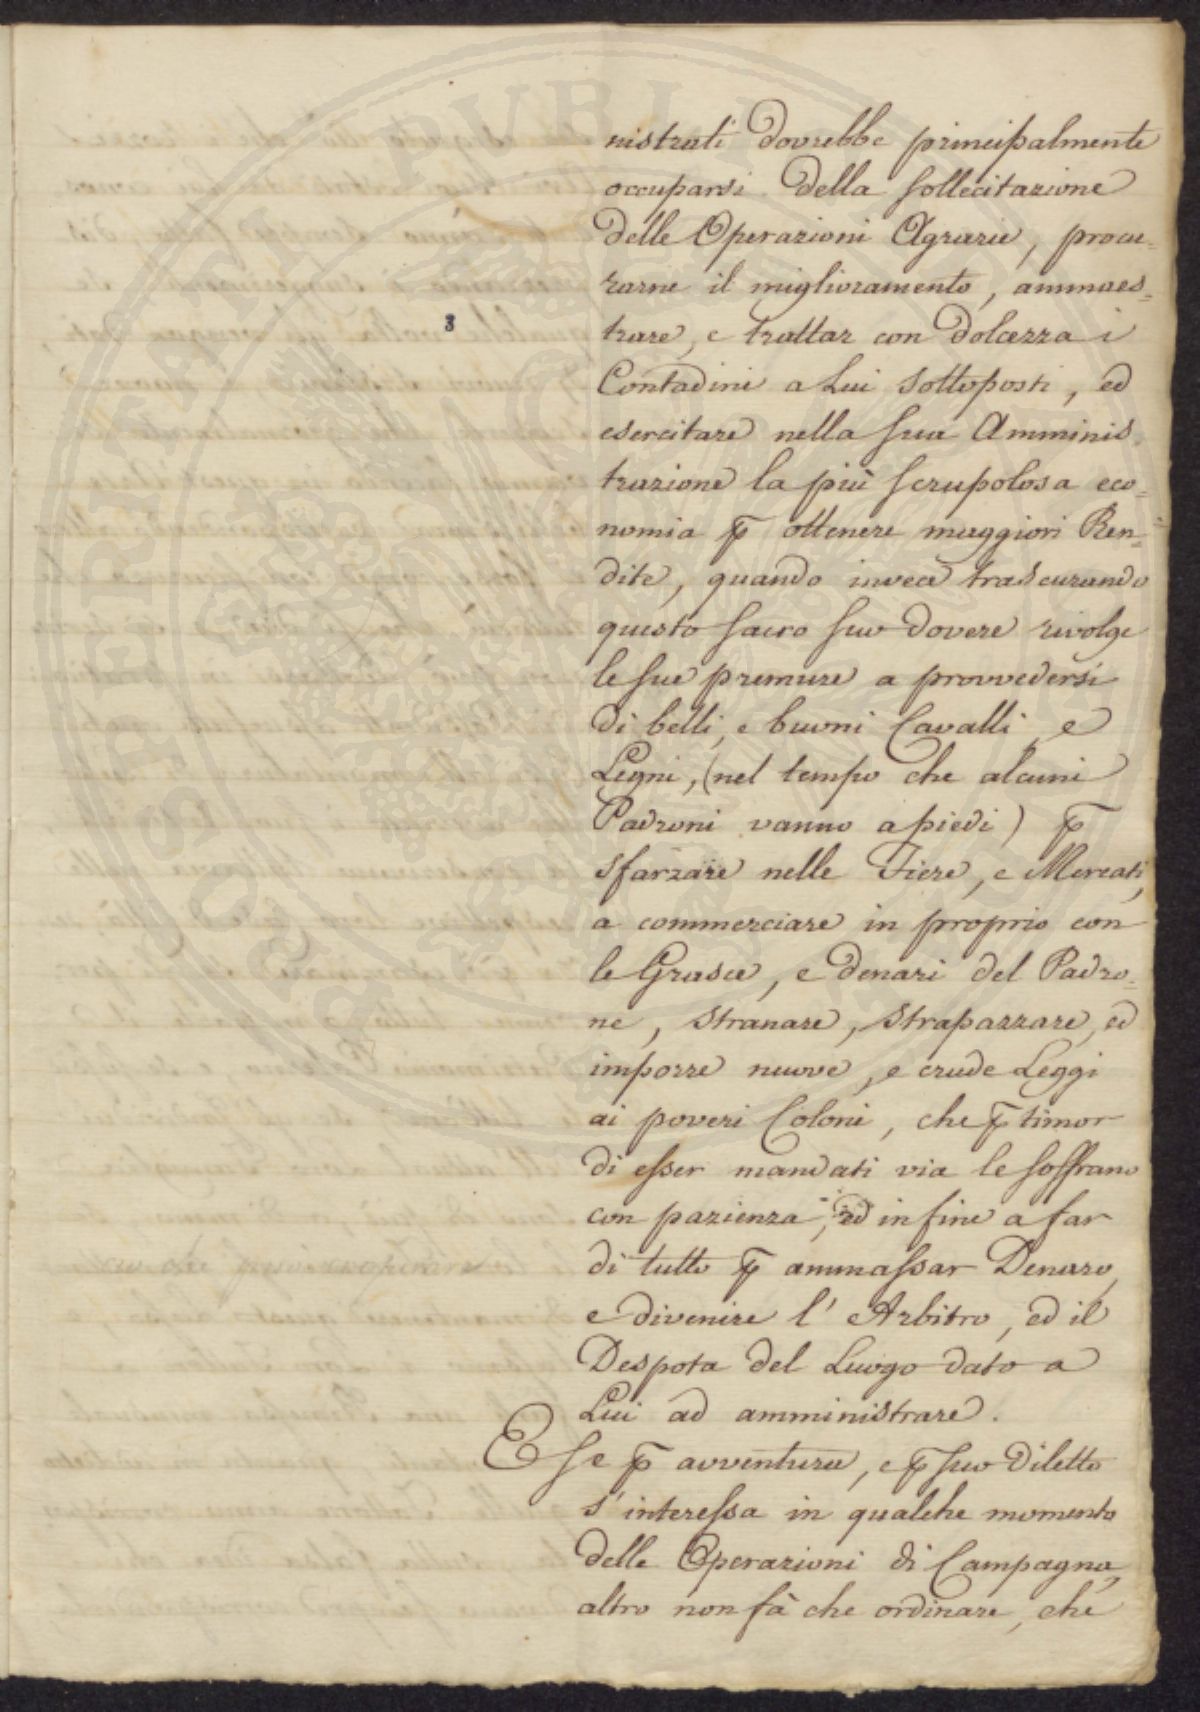 3
nistrati dovrebbe principalmente
occuparsi della sollecitazione
delle Operazioni Agrarie, procu=
rarne il miglioramento, ammaes=
trare, e trattar con dolcezza i
Contadini a Lui Sottoposti, ed
esercitare nella sua Amminis=
trazione la più scrupolosa eco=
nomia p ottenere maggiori Ren=
dite, quando invece trascurando
questo sacro suo dovere rivolge
le sue premure a provvedersi
di belli, e buoni Cavalli, e
Legni, (nel tempo che alcuni
Padroni vanno a piedi) p
sfarzare nelle Fiere, e Mercati,
a commerciare in proprio con
le Grasce, e denari del Padro=
ne, stranare, strapazzare, ed
imporre nuove, e crude Leggi
ai poveri Coloni, che p timor
di esser mandati via le soffrano
con pazienza, ed in fine a far
di tutto p ammassar Denaro,
e divenire l' Arbitro, ed il
Despota del Luogo dato a
Lui ad amministrare.
E se p avventura, e p suo diletto
s' interessa in qualche momento
delle Operazioni di Campagna,
altro non fà che ordinare, che